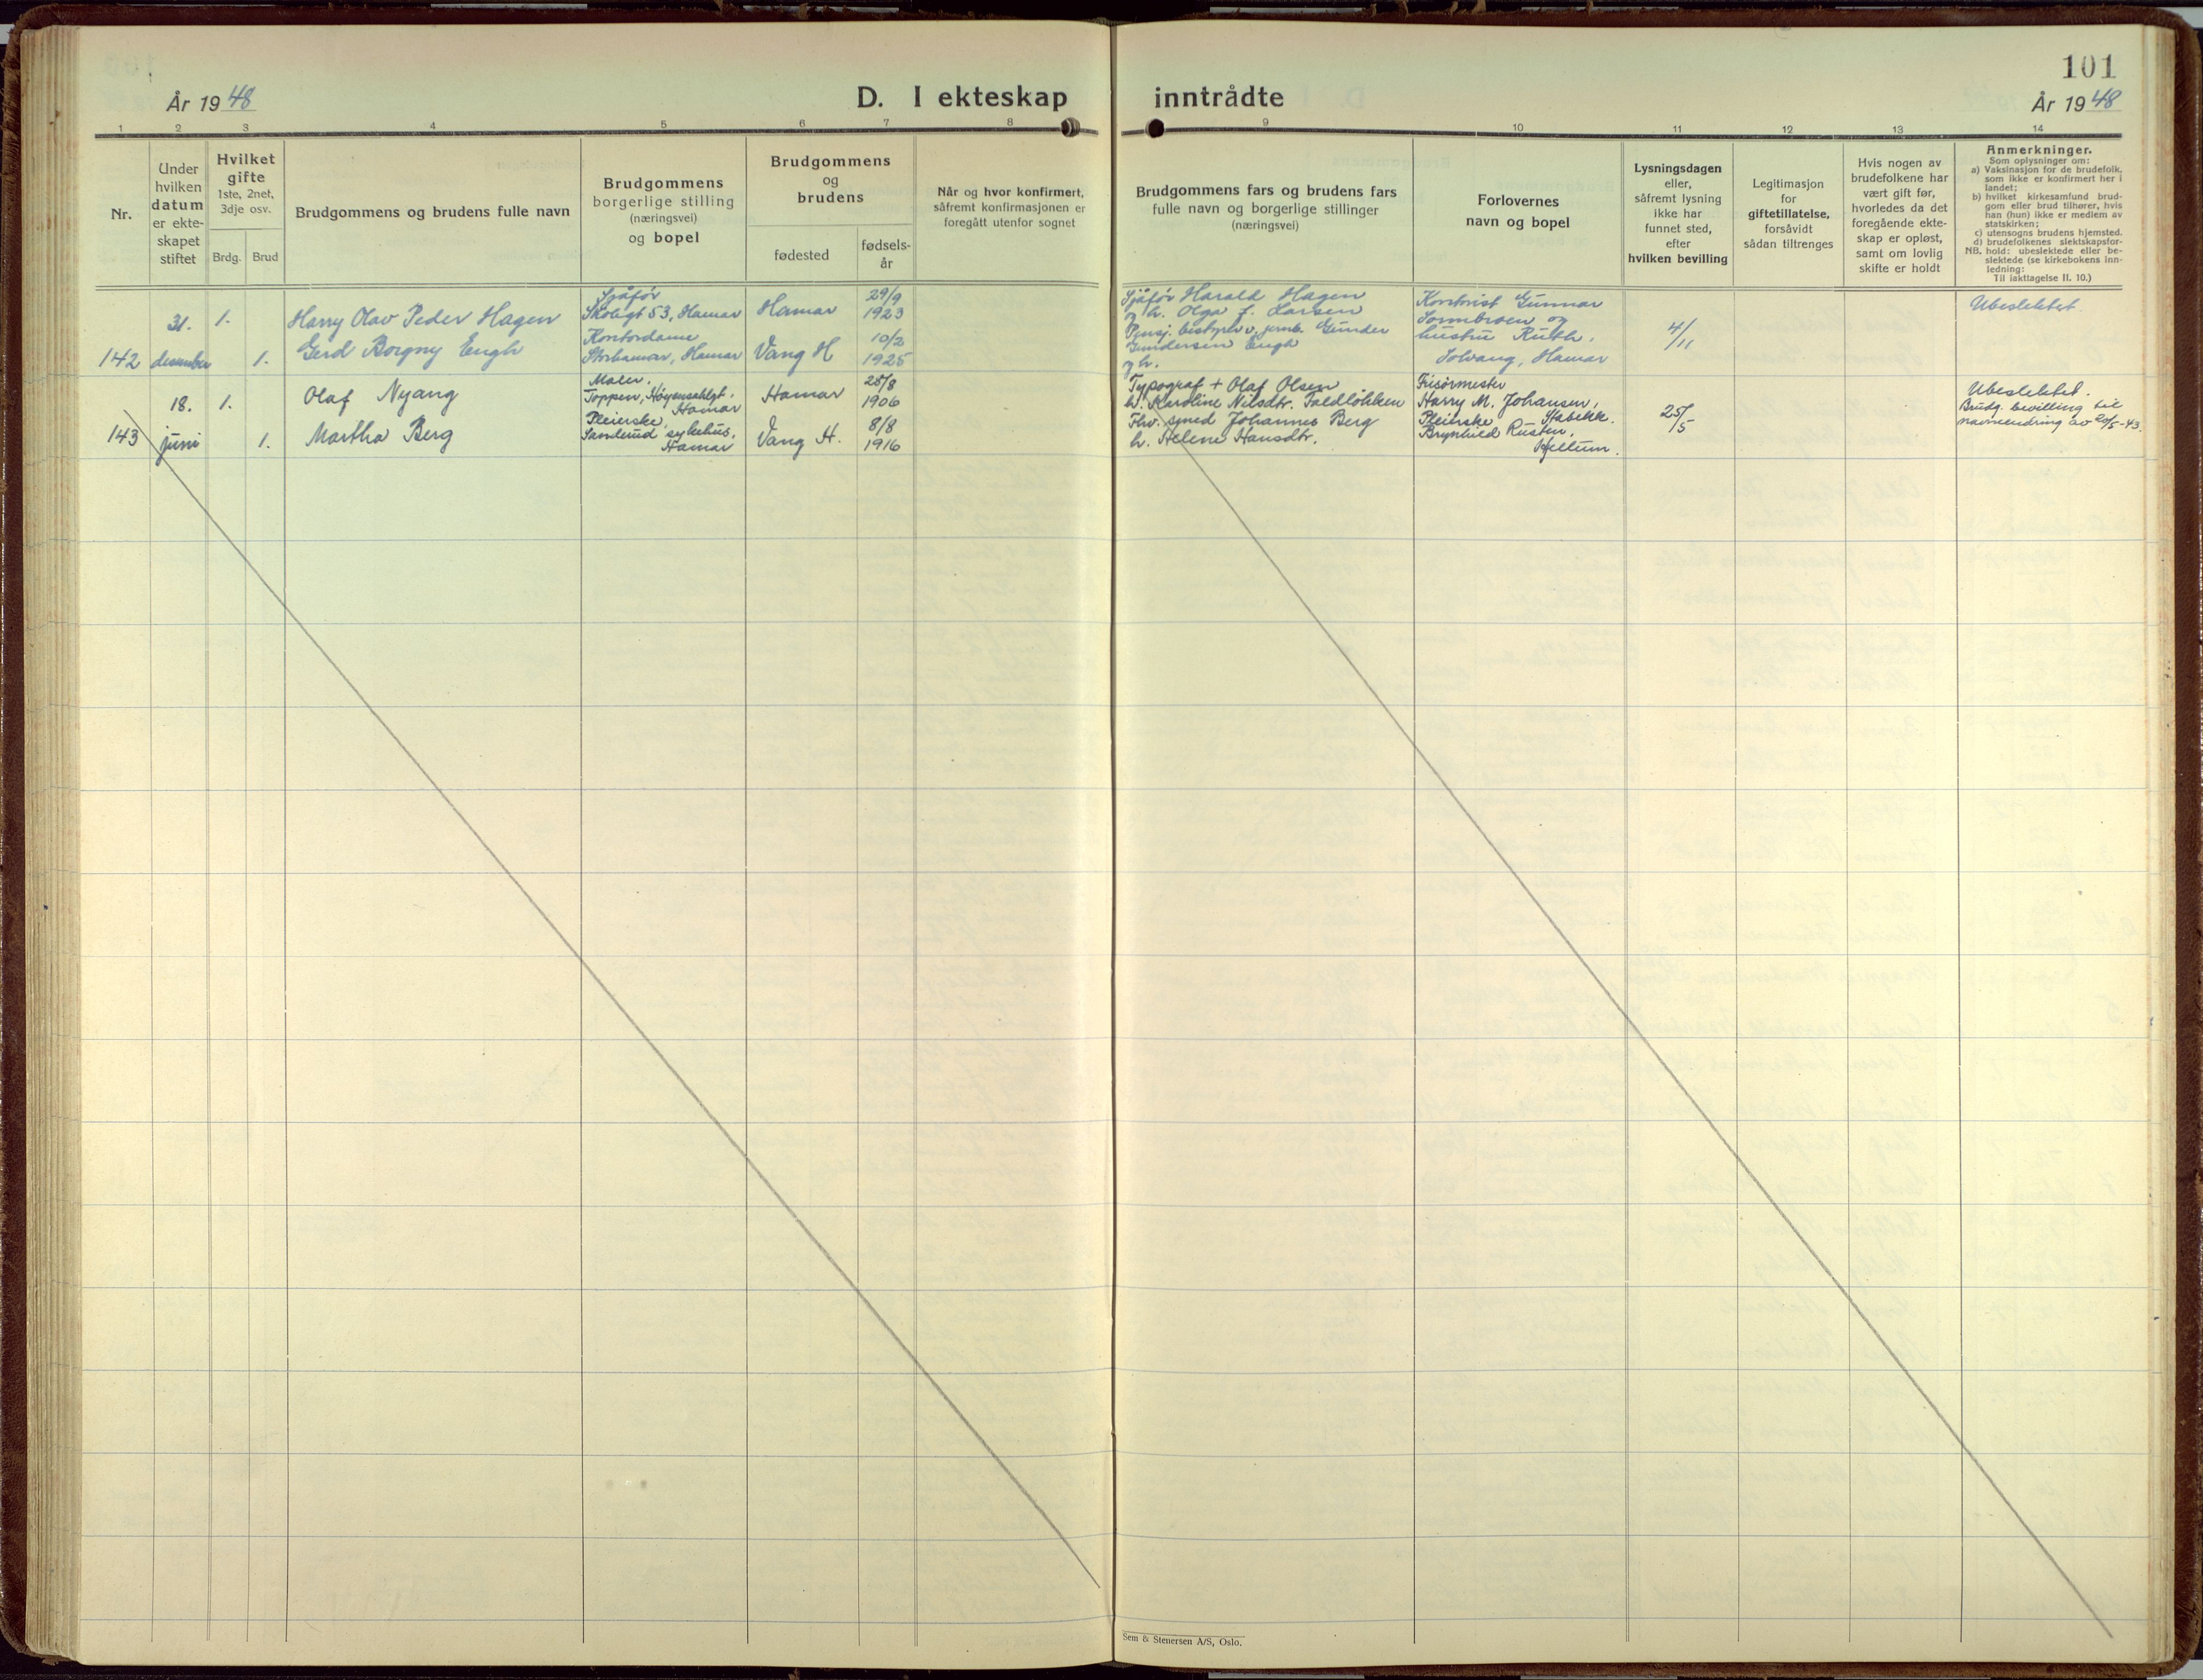 101
År 1948
D. I ekteskap inntrådte
År 1948
1 2 3 4 5 6 7 8 9 10 11 12 13 14
Nr.
Under
hvilken
datum
er ekte-
skapet
stiftet
Hvilket
gifte
1ste, 2net,
3dje osv.
Brdg. Brud
Brudgommens og brudens fulle navn
Brudgommens
borgerlige stilling
(næringsvei)
og bopel
Brudgommens
og
brudens
fødested
fødsels-
år
Når og hvor konfirmert,
såfremt konfirmasjonen er
foregått utenfor sognet
Brudgommens fars og brudens fars
fulle navn og borgerlige stillinger
(næringsvei)
Forlovernes
navn og bopel
Lysningsdagen
eller,
såfremt lysning
ikke har
funnet sted,
efter
hvilken bevilling
Legitimasjon
for
giftetillatelse,
forsåvidt
sådan tiltrenges
Hvis nogen av
brudefolkene har
vært gift før,
hvorledes da det
foregående ekte-
skap er opløst,
samt om lovlig
skifte er holdt
Anmerkninger.
Som oplysninger om:
a) Vaksinasjon for de brudefolk,
som ikke er konfirmert her i
landet;
b) hvilket kirkesamfund brud-
gom eller brud tilhører, hvis
han (hun) ikke er medlem av
statskirken;
c) utensogns brudens hjemsted.
d) brudefolkenes slektskapsfor-
NB. hold: ubeslektede eller be-
slektede (se kirkebokens inn-
ledning:
Til iakttagelse II. 10.)
142
31.
desember
1.
1.
Harry Olav Peder Hagen
Gerd Borgny Engh
Sjåfør
Skolegt 53, Hamar
Kontordame
Storhamar, Hamar
Hamar
Vang H
29/9
1923
10/2
1925
Sjåfør Harald Hagen
og h. Olga f. Larsen
Pensj. bestyrer v. jernb. Gunder
Gundersen Engh
og h.
Gunnar
og
hustru Ruth,
Solvang, Hamar
4/11
Ubeslektet
143
18.
juni
1.
1.
Olaf Nyang
Martha Berg
Maler.
Toppen, Høyensahlgt,
Hamar
Pleierske,
Sanderud sykehus,
Hamar
Hamar
Vang H.
28/8
1906
8/8
1916
Typograf + Olaf Olsen
h. Karoline Nilsdtr. Faldløkken
Fhv. smed Johannes Berg
h. Helene Hansdtr.
Frisørmester
Harry M. Johansen,
Stabekk.
Pleierske
Brynhild Rusten,
Kjellum.
25/5
Ubeslektet.
Brudg. bevilling til
navneendring av 20/5-43.
Sem & Stenersen A/S, Oslo.